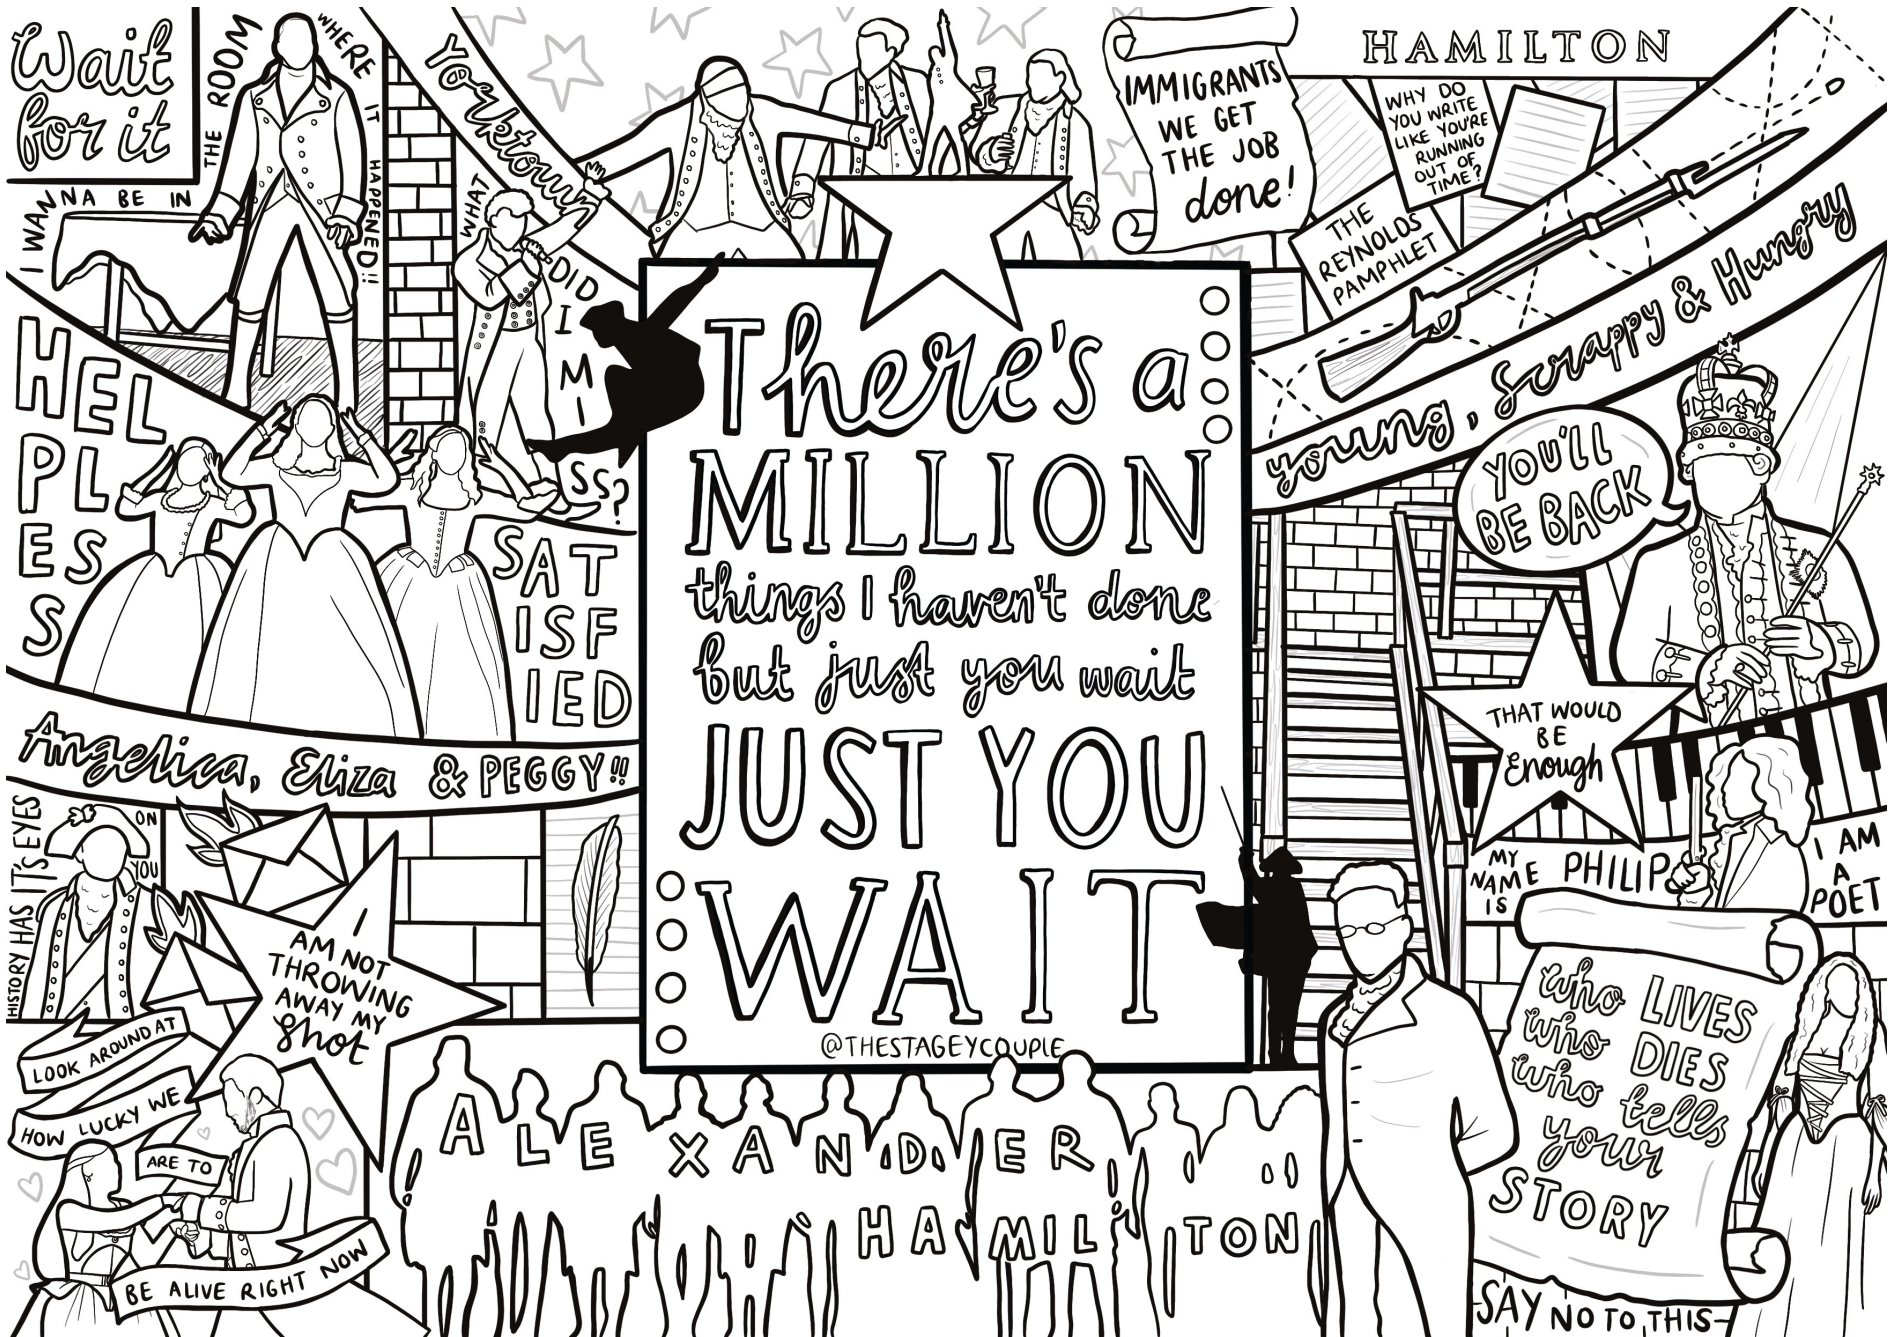 Wait
for it
I WANNA BE IN
THE ROOM
WHERE IT HAPPENED!!
Yorktown
WHAT
DID
I
M
I
SS?
IMMIGRANTS
WE GET
THE JOB
done!
HAMILTON
WHY DO
YOU WRITE
LIKE YOU'RE
RUNNING
OUT OF
TIME?
THE
REYNOLDS
PAMPHLET
young, Scrappy & Hungry
YOU'LL
BE BACK
HEL
PL
ES
S
SAT
ISF
IED
Angelica, Eliza & PEGGY!!
There's a
MILLION
things I haven't done
but just you wait
JUST YOU
WAIT
@THESTAGEYCOUPLE
THAT WOULD
BE
Enough
MY
NAME
IS
PHILIP
I AM
A
POET
HISTORY HAS IT'S EYES
ON
YOU
I
AM NOT
THROWING
AWAY MY
Shot
LOOK AROUND AT
HOW LUCKY WE
ARE TO
BE ALIVE RIGHT NOW
ALEXANDER
HAMILTON
who LIVES
who DIES
who tells
your
STORY
SAY NO TO THIS